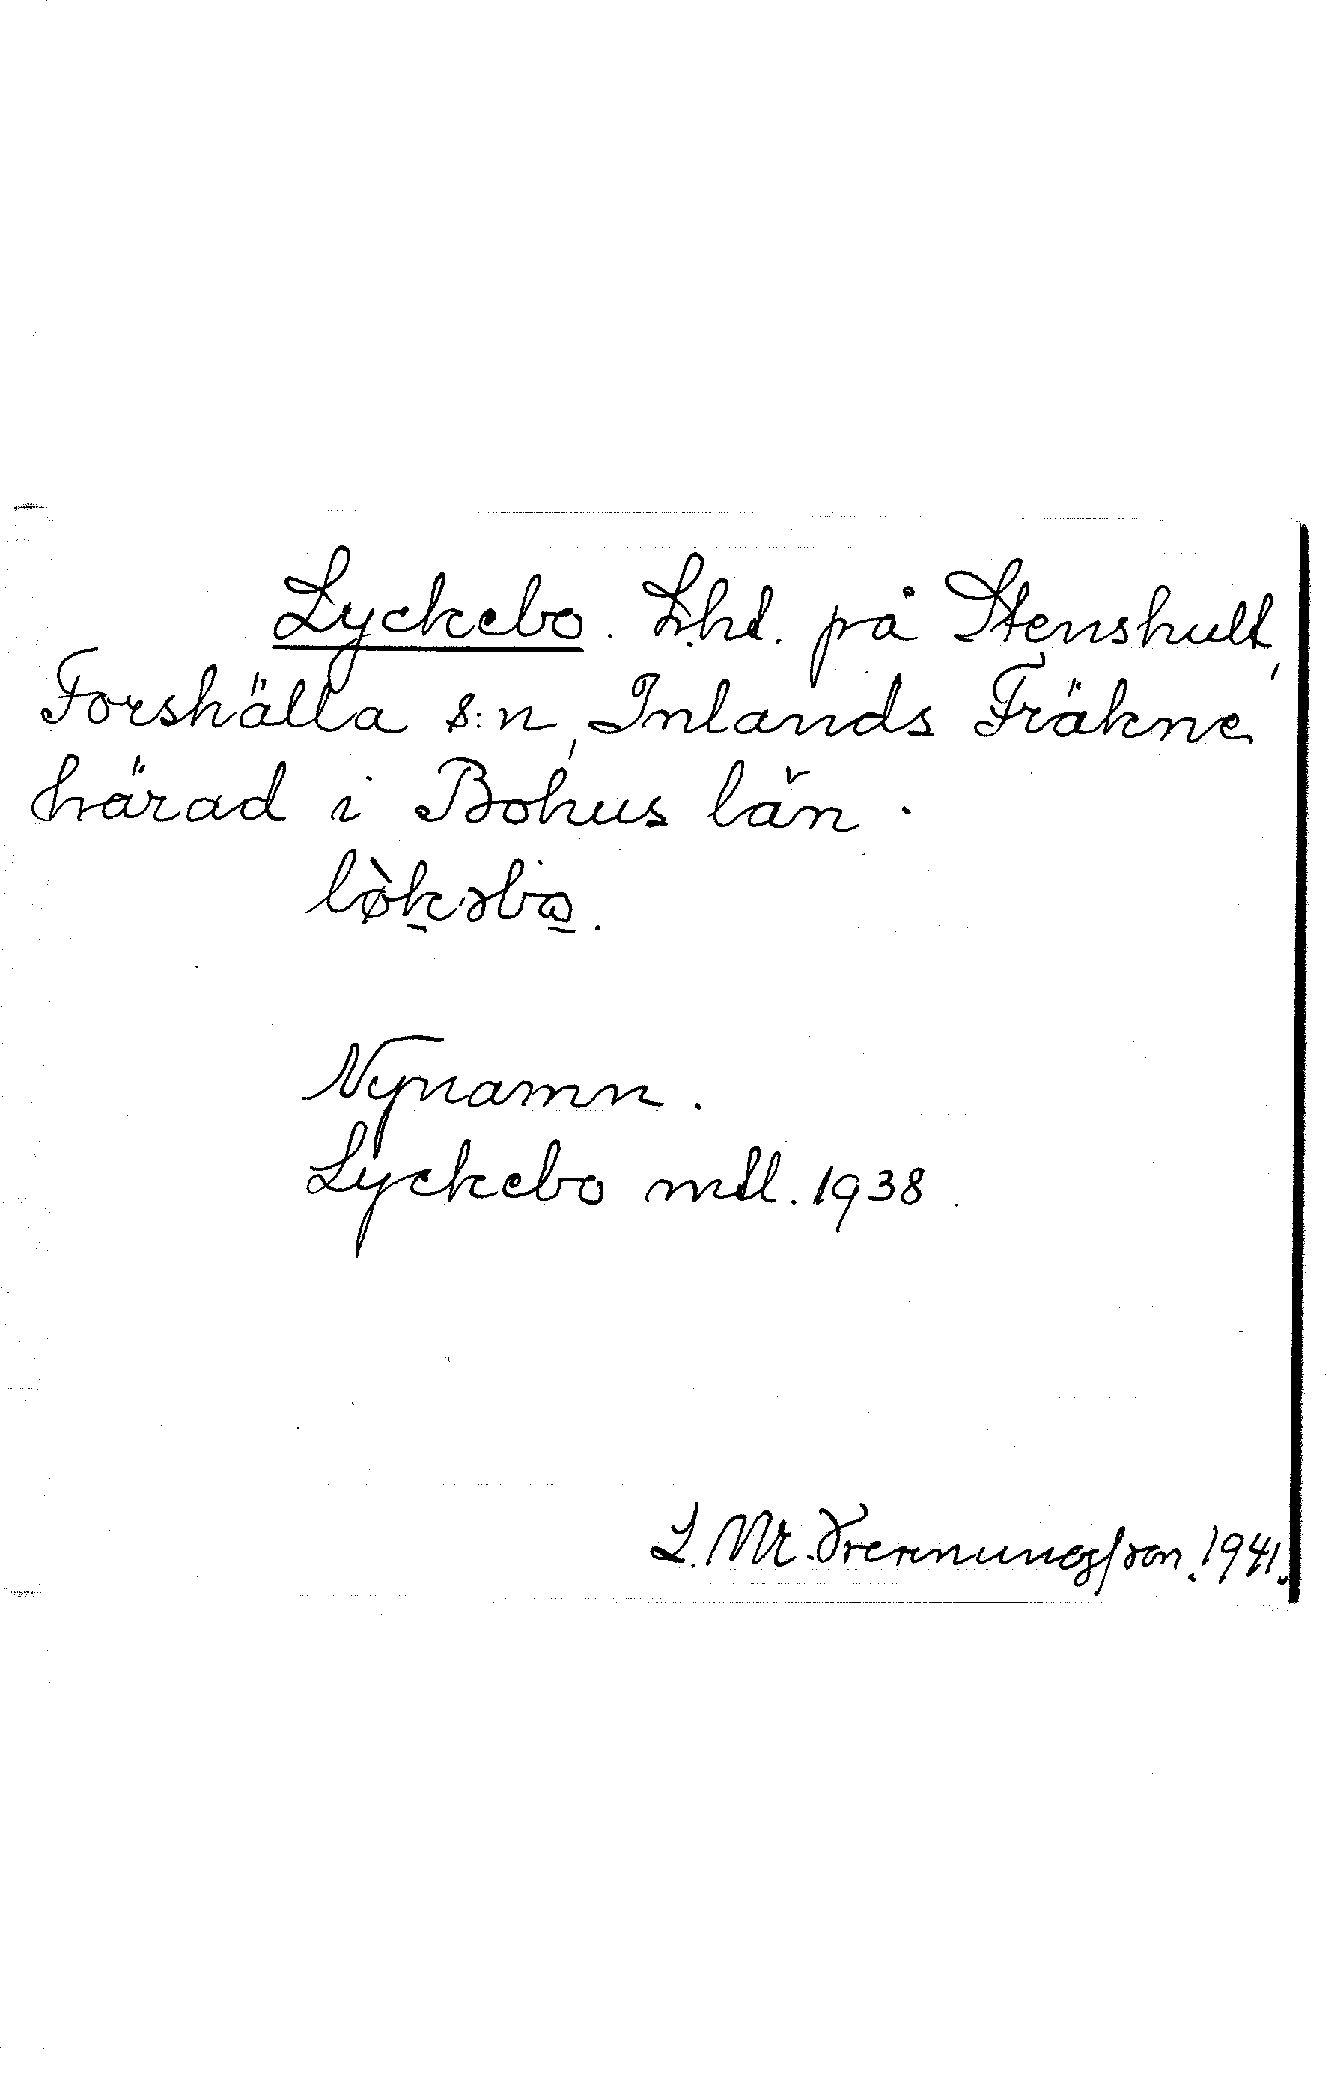 Lyckebo. Lht. på Stenshult,
Forshälla s:n, Inlands Fräkne
härad i Bohus län.
lø̀kəbɷ.
Nynamn.
Lyckebo mtl. 1938.
L. M. 1941.